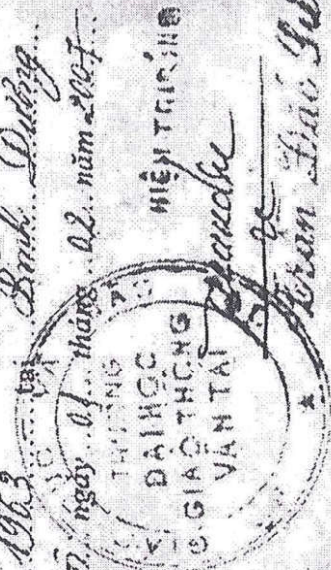 1963 tại Bình Dương
ngày 07 tháng 02 năm 2007
HIỆU TRƯỞNG
TRƯỜNG
ĐẠI HỌC
GIAO THÔNG
VẬN TẢI
Trần Đắc Sử